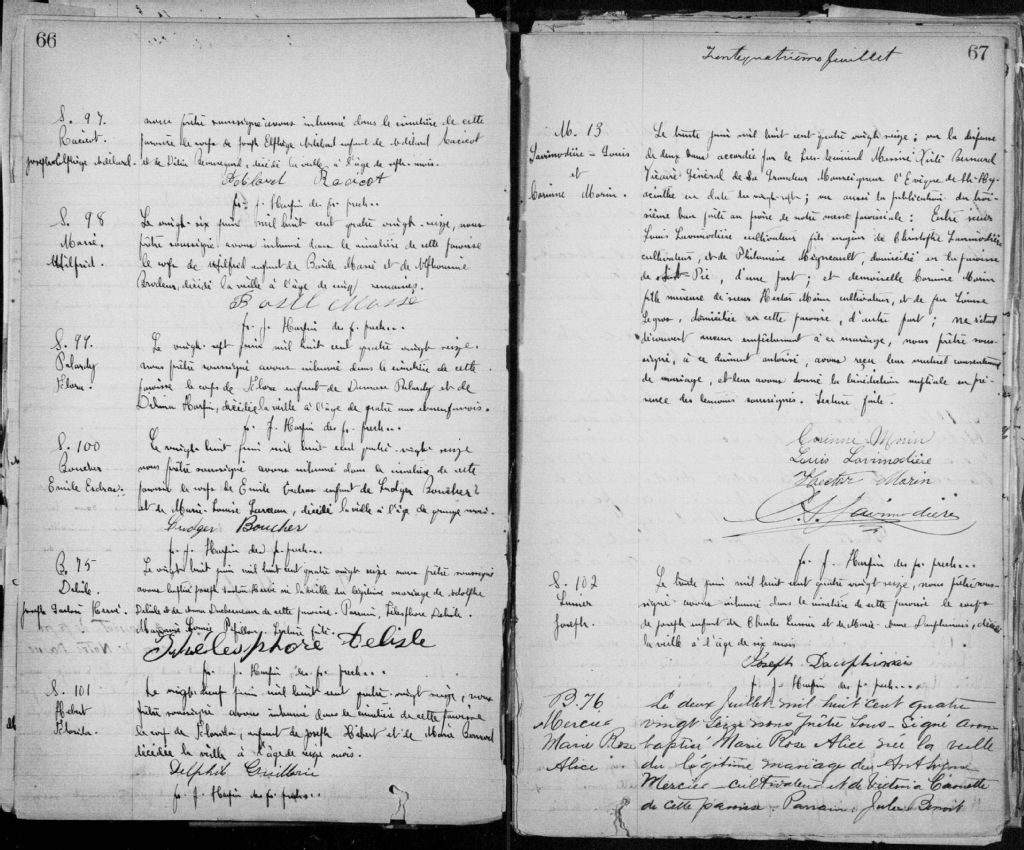 66
S. 97.
Racicot
Joseph Elphège Adélard.
nous prêtre soussigné avons inhumé dans le cimetière de cette
paroisse le corps de Joseph Elphège Adélard enfant de Adélard Racicot
et de décidé la veille, à l'âge de sept mois.
Adélard Racicot
fr. J. Harpin des fr. prech...
S. 98
Massé
Wilfrid.
Le vingt-six juin mil huit cent quatre vingt-seize, nous
prêtre soussigné avons inhumé dans le cimetière de cette paroisse
le corps de Wilfrid enfant de Basile Massé et de
Bordeur, décidé la veille à l'âge de semaines.
Basil Masse
fr. J. Harpin des fr. prech...
S. 99.
Palardy
Flore
Le vingt-sept juin mil huit cent quatre vingt-seize
nous prêtre soussigné avons inhumé dans le cimetière de cette
paroisse le corps de Flore enfant de Palardy et de
Harpin, décidée la veille à l'âge de quatre ans
fr. J. Harpin des fr. prech...
S. 100
Boucher
Emile Esdras.
Le vingt-huit juin mil huit cent quatre vingt-seize
nous prêtre soussigné avons inhumé dans le cimetière de cette
paroisse le corps de Emile Esdras enfant de Ludger Boucher
et de Marie-Louise décidé la veille à l'âge de mois.
Ludger Boucher
fr. J. Harpin des fr. prech...
B. 75
Delisle.
Joseph Hervé.
Le vingt-huit juin mil huit cent quatre vingt seize nous prêtre soussigné
avons baptisé Joseph Hervé né la veille du légitime mariage de Adolphe
Delisle et de Anna de cette paroisse. Parrain, Télesphore Delisle.
Marraine Louise Lecture faite.
Thélesphore Delisle
fr. J. Harpin des fr. prech...
S. 101
Hébert
Florida.
Le vingt-neuf juin mil huit cent quatre-vingt seize, nous
prêtre soussigné avons inhumé dans le cimetière de cette paroisse
le corps de Florida, enfant de Joseph Hébert et de Marie
décidée la veille à l'âge de seize mois.
Delphis
fr. J. Harpin des fr. prech...
67
feuillet
M. 13
Lavimodière - Louis
et
Corinne Morin.
Le trente juin mil huit cent quatre vingt seize; vu la dispense
de deux bans accordée par le Révérend Messire Bernard
Vicaire Général de Sa Grandeur Monseigneur l'Evêque de St-Hy-
acinthe en date du vingt-sept; vu aussi la publication du troi-
sième ban faite au prône de notre messe paroissiale: Entre sieur
Louis Lavimodière cultivateur fils majeur de Christophe Lavimodière
cultivateur, et de Philomène Migneault, domicilié en la paroisse
de St-Pie, d'une part; et demoiselle Corinne Morin
fille mineure de sieur Hector Morin cultivateur, et de feu Louise
Legros, domiciliée en cette paroisse, d'autre part; ne s'étant
découvert aucun empêchement à ce mariage, nous prêtre sous-
signé, à ce dûment autorisé, avons reçu leur mutuel consentement
de mariage, et leur avons donné la bénédiction nuptiale en pré-
sence des témoins soussignés. Lecture faite.
Corinne Morin
Louis Lavimodière
Hector Morin
Lavimodière
fr. J. Harpin des fr. prech...
S. 102
Joseph.
Le trente juin mil huit cent quatre vingt seize, nous prêtre sous-
signé avons inhumé dans le cimetière de cette paroisse le corps
de Joseph enfant de Charles et de Marie-Anne Dauphinais, décidé
la veille à l'âge de six mois
Joseph Dauphinais
fr. J. Harpin des fr. prech...
B. 76
Mercier
Marie Rose
Alice
Le deux Juillet mil huit cent quatre
vingt seize nous prêtre sous-signé avons
baptisé Marie Rose Alice née la veille
du légitime mariage de Antoine
Mercier cultivateur et de Victoria
de cette paroisse. Parrain: Jules Benoit